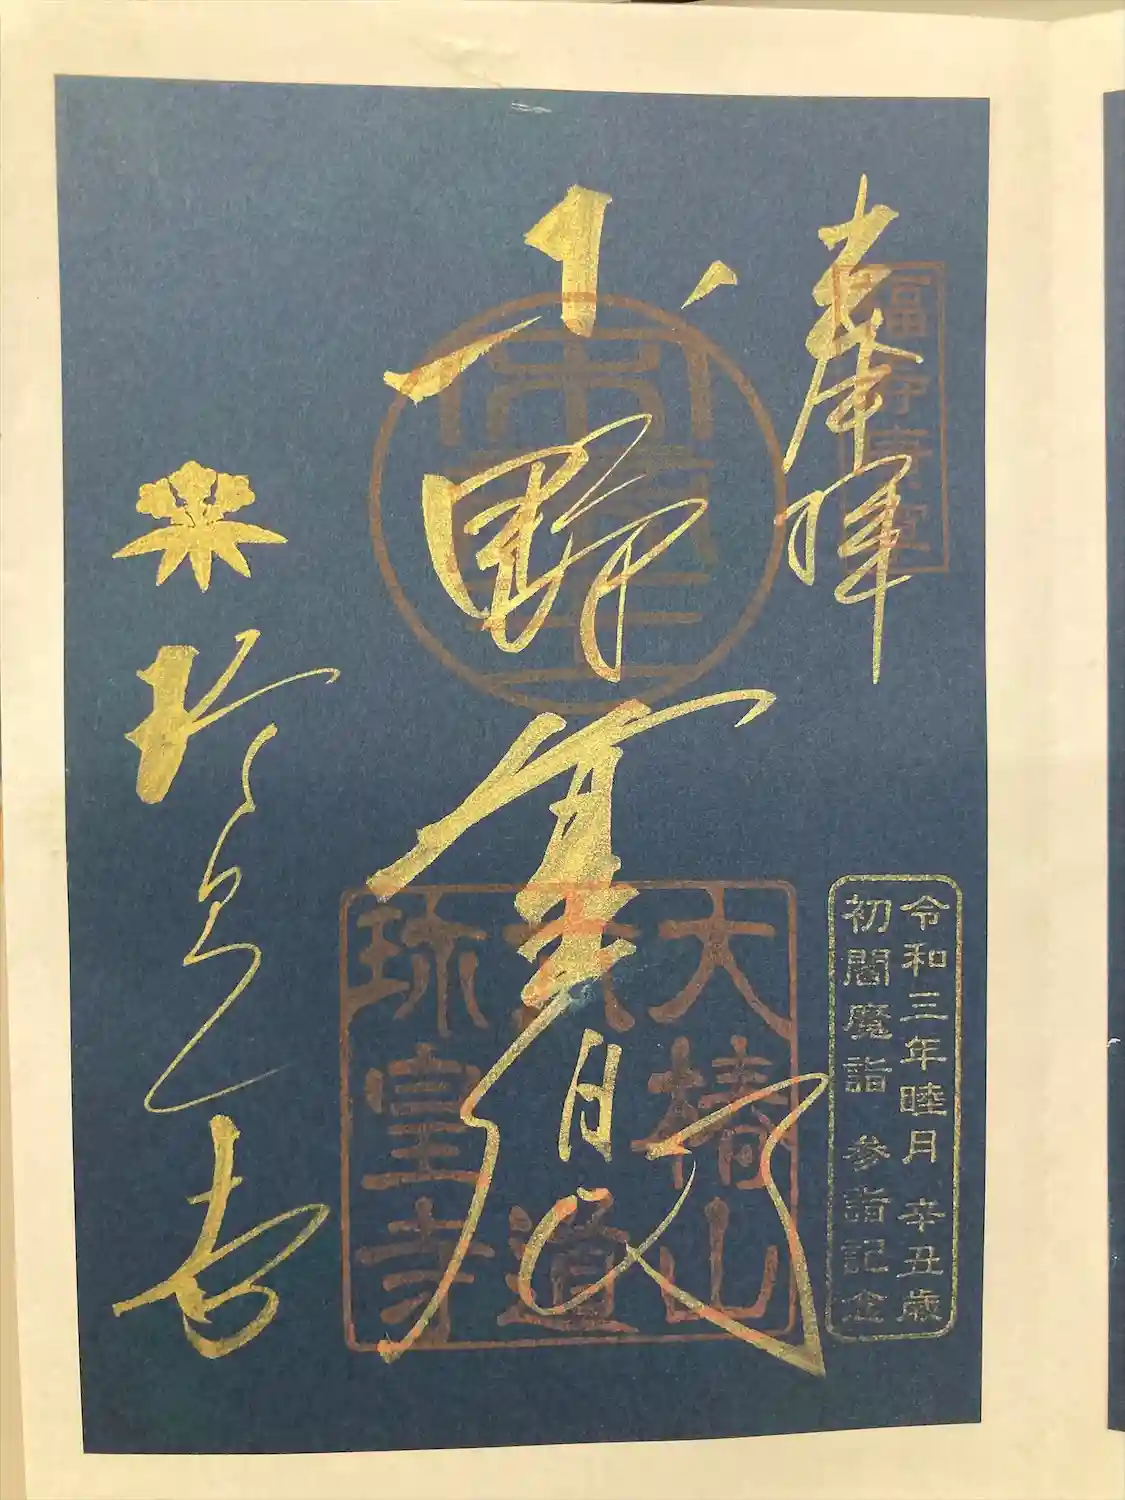 奉拝
令和三年睦月 辛丑歳
初閻魔詣 参詣記念
小野篁卿
大椿山
六道
珎皇寺
珍皇寺